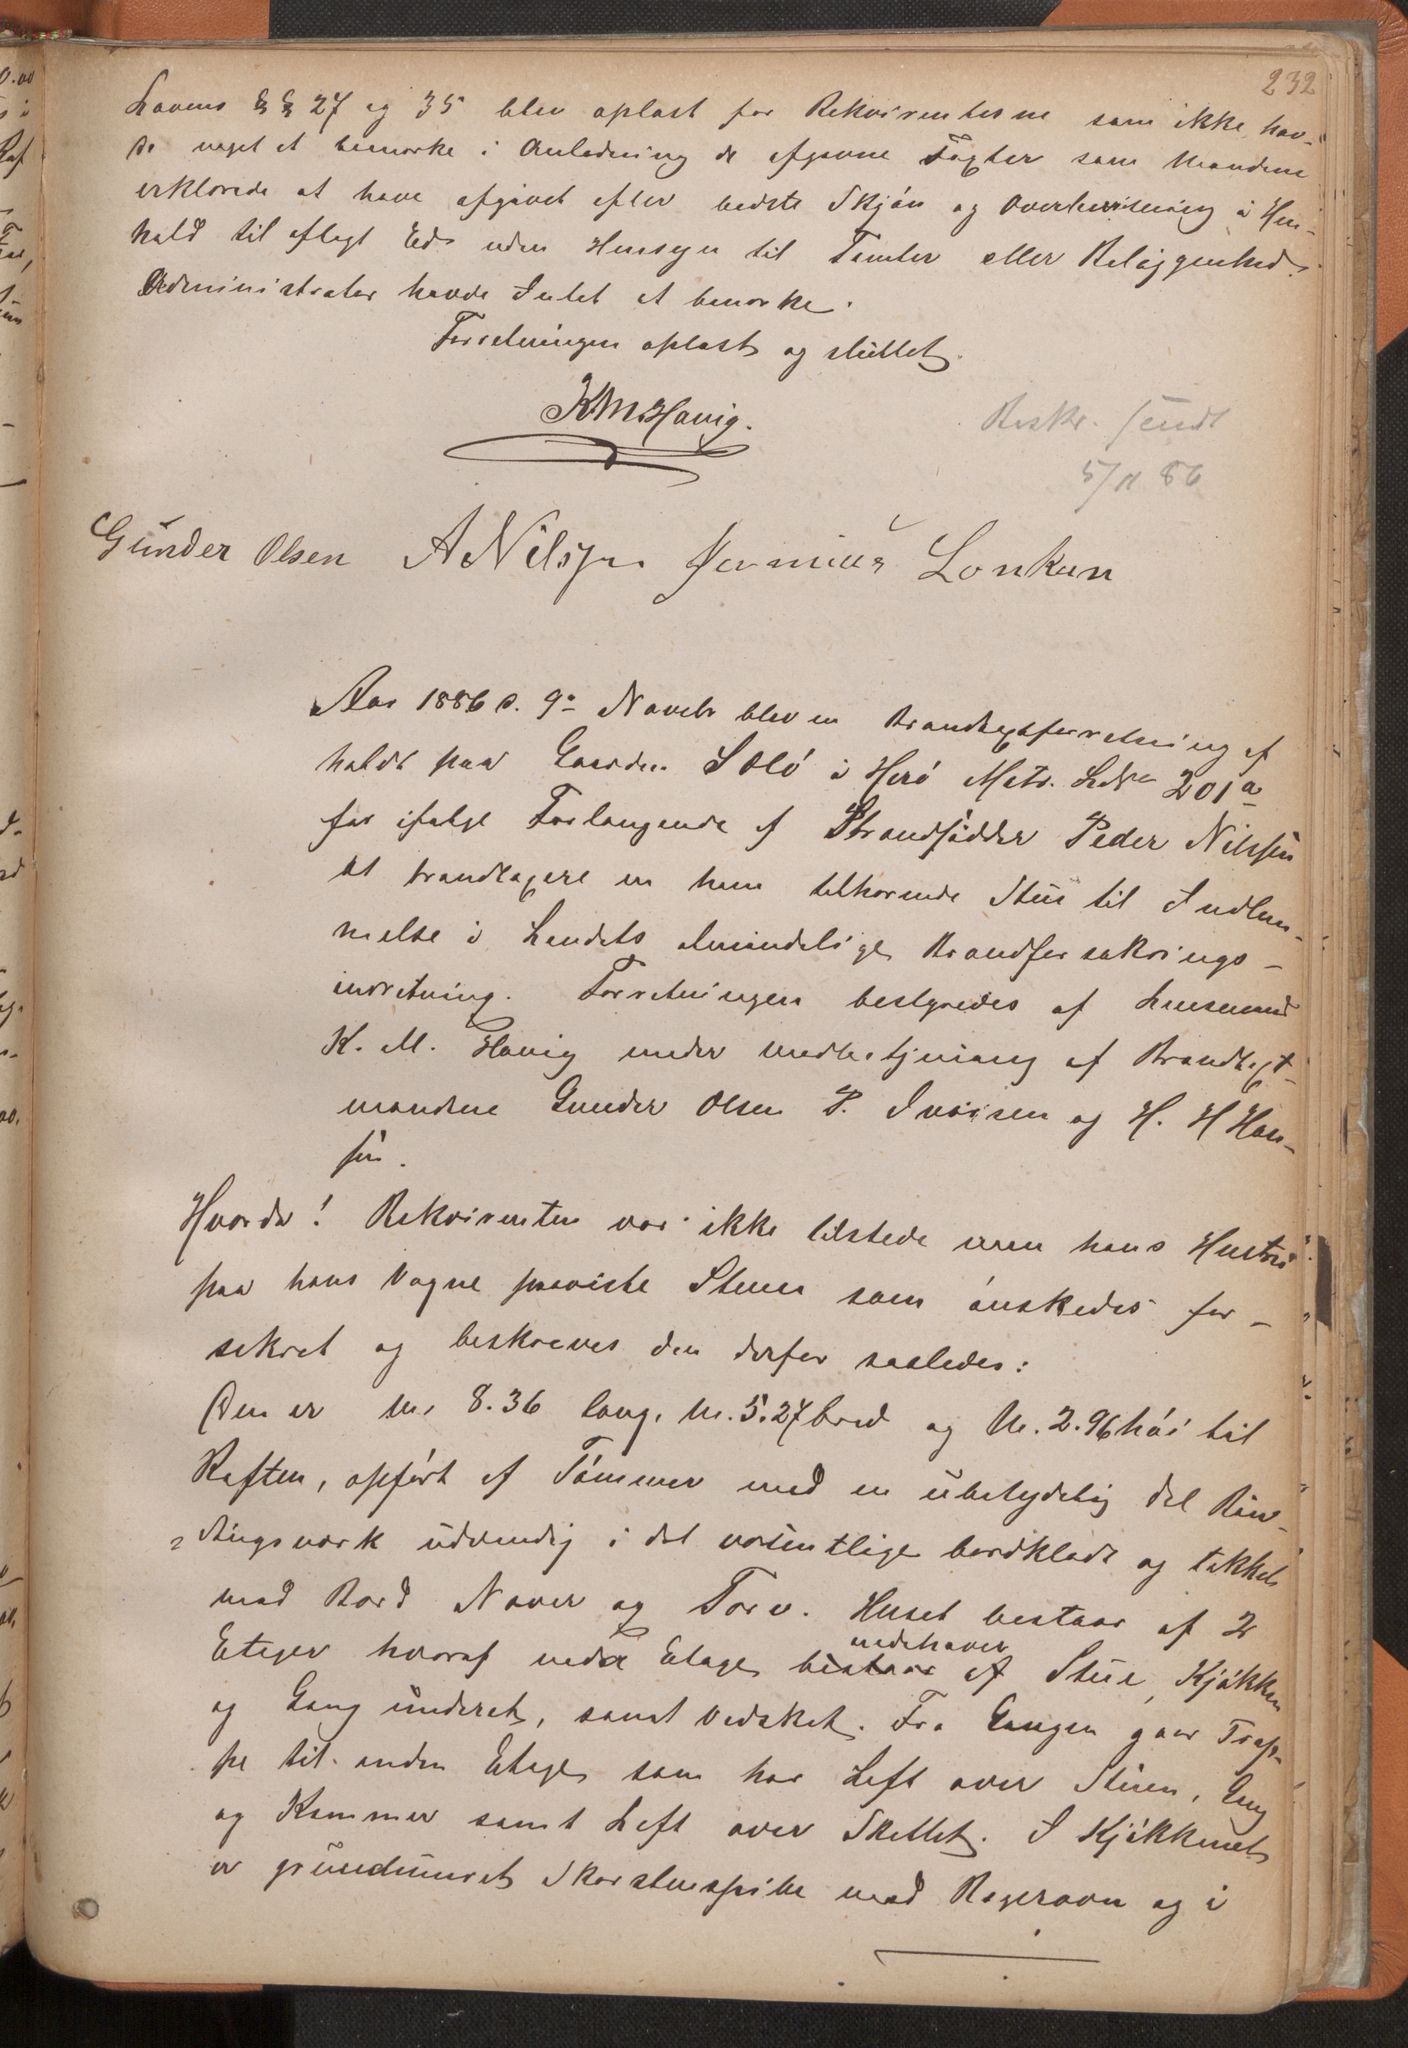 232
Lovens §§ 27 og 35 blev oplæst for Rekvirenterne som ikke hav-
de noget at bemærke i Anledning de afgivne Taxter som Mændene
erklærede at have afgivet efter bedste Skjøn og Overbevisning i Hen-
hold til aflagt Ed uden Hensyn til Tomter eller Beliggenhed.
Administrator havde Intet at bemærke.
Forretningen oplæst og sluttet.
K M Havig.
Beskr. sendt
5/11 86
Gunder Olsen A Nilsen Jermius Lonkan
Aar 1886 d. 9de Novebr blev en Brandtaxtforretning af
holdt paa Gaarden Sölö i Herö Matr. LNo 201a
for ifølge Forlangende af Strandsidder Peder Nilssen
at brandtaxere en ham tilhørende Stue til Indlem-
melse i Landets almindelige Brandforsikrings-
inretning. Forretningen bestyredes af Lensmand
K. M. Havig under medbetjening af Brandtaxt-
mændene Gunder Olsen P. Iversen og H. H Han-
sen.
Hvorda! Rekvirenten var ikke tilstede men hans Hustru
paa hans Vegne paaviste Stuen som ønskedes for-
sikret og beskreves den derfor saaledes:
Den er M. 8.36 lang. M. 5.27 bred og M. 2.96 høi til
Raften, opført af Tømmer med en ubetydelig del Bin-
dingsværk udvendig i det væsentlige bordklædt og tækket
med Bord Næver og Torv. Huset bestaar af 2
Etager hvoraf nedre Etage bestaar af Stue, Kjøkken
indehaver
og Gang underet, samt Vedsket. Fra Gangen gaar Trap-
pe til anden Etage som har Loft over Stuen, Gang
og Kammer samt Loft over Skottet. I Kjøkkenet
er grundmuret Skorstenspibe med Bagerovn og i